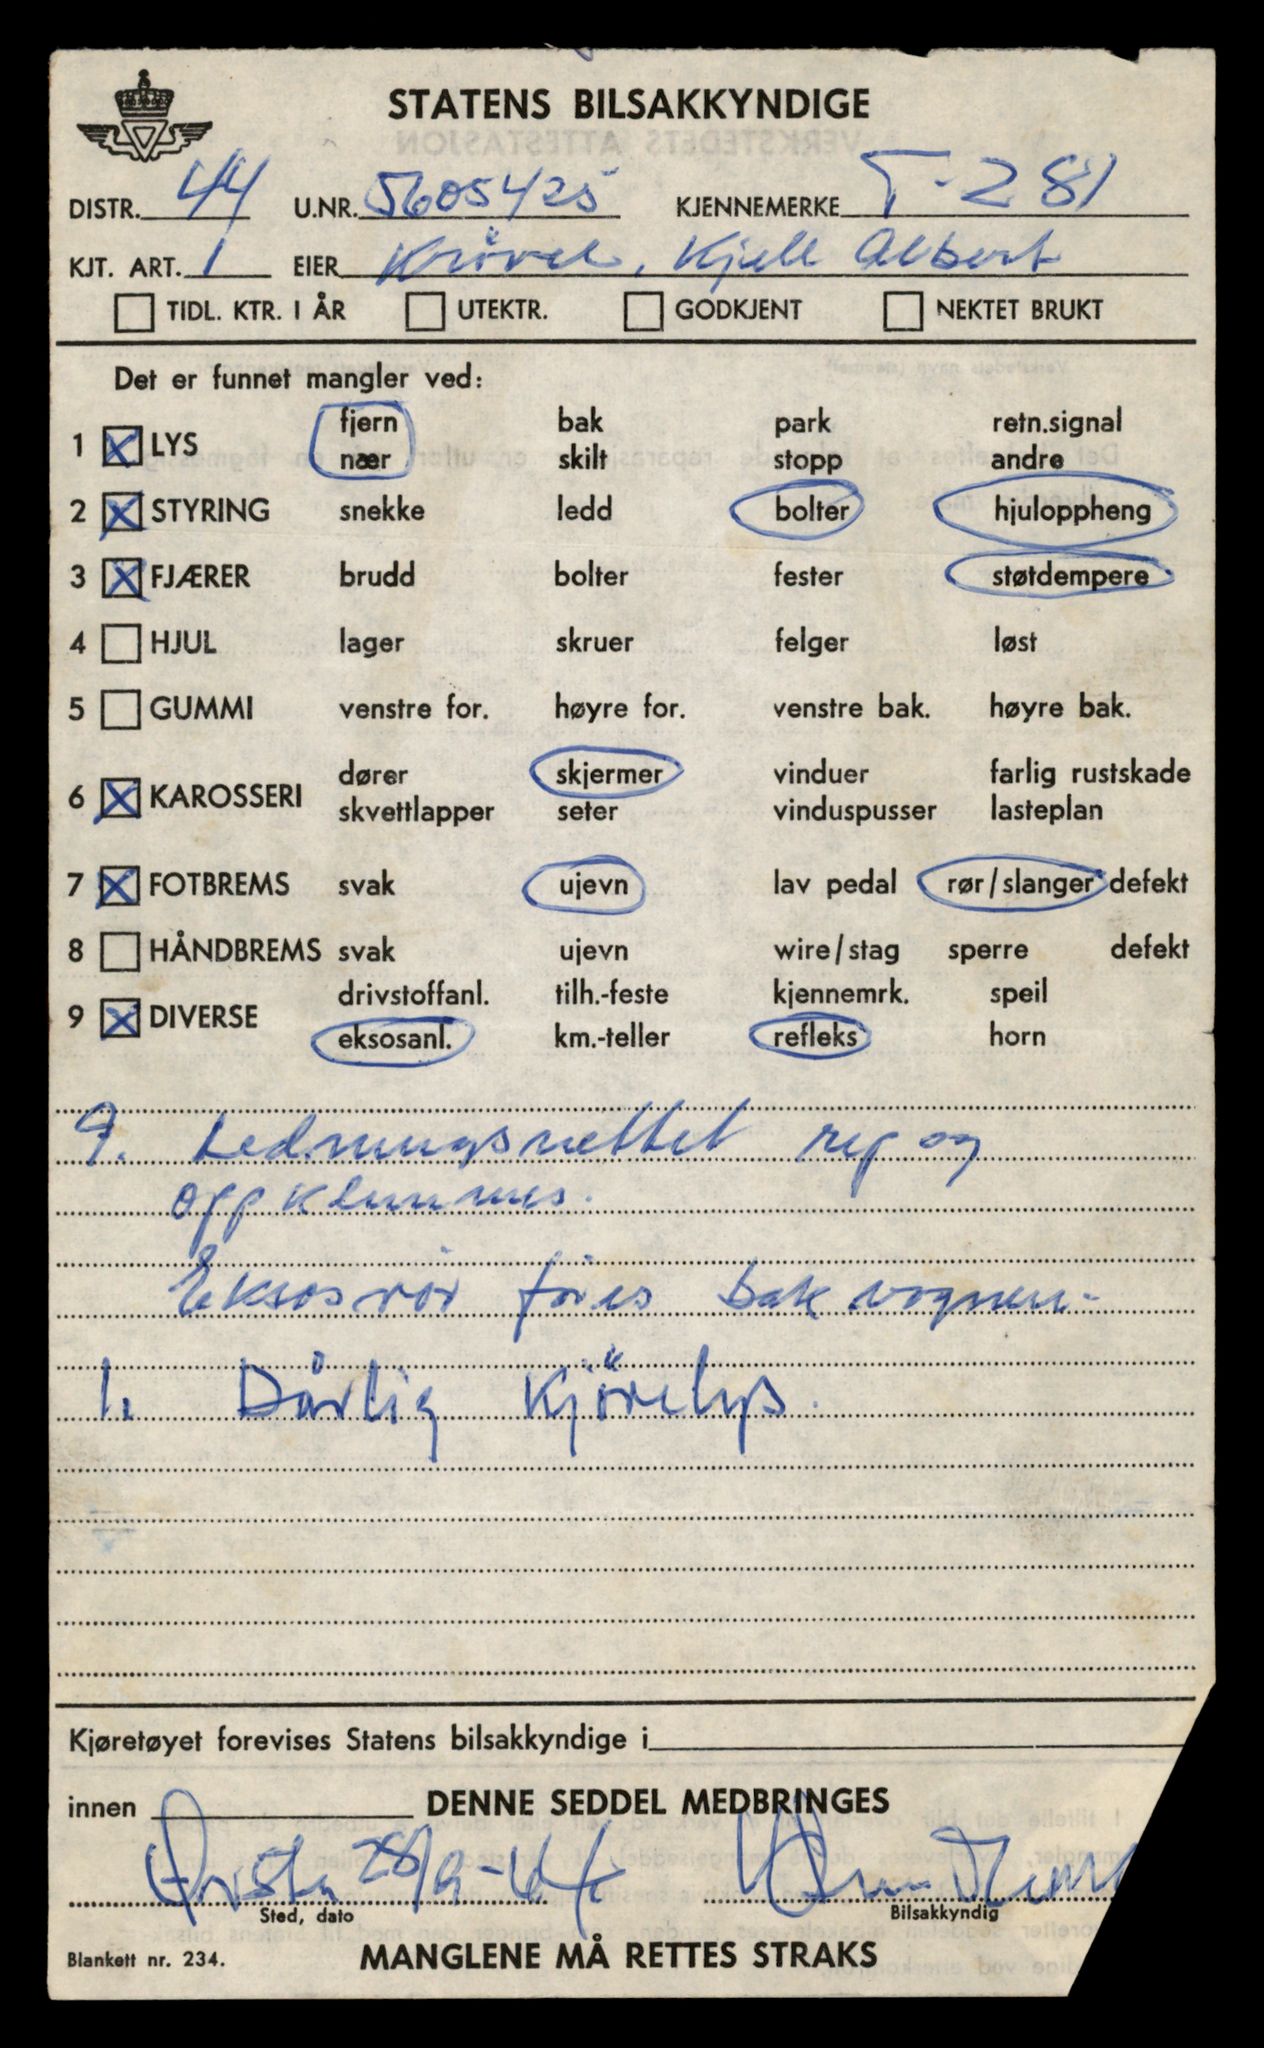 STATENS BILSAKKYNDIGE
DISTR. 44 U.NR. 5605425 KJENNEMERKE T-281
KJT. ART. 1 EIER Kjell Albert
TIDL. KTR. I ÅR UTEKTR. GODKJENT NEKTET BRUKT
Det er funnet mangler ved:
fjern bak park retn.signal
1 LYS
nær skilt stopp andre
2 STYRING snekke ledd bolter hjuloppheng
3 FJÆRER brudd bolter fester støtdempere
4 HJUL lager skruer felger løst
5 GUMMI venstre for. høyre for. venstre bak. høyre bak.
dører skjermer vinduer farlig rustskade
6 KAROSSERI
skvettlapper seter vinduspusser lasteplan
7 FOTBREMS svak ujevn lav pedal rør/slanger defekt
8 HÅNDBREMS svak ujevn wire/stag sperre defekt
drivstoffanl. tilh.-feste kjennemrk. speil
9 DIVERSE
eksosanl. km.-teller refleks horn
9. Ledningsnettet rep og
oppklemmes.
Eksosrör föres bak vognen.
1. Dårlig kjörelys.
Kjøretøyet forevises Statens bilsakkyndige i
innen DENNE SEDDEL MEDBRINGES
28/9-64
Sted, dato Bilsakkyndig
Blankett nr. 234. MANGLENE MÅ RETTES STRAKS